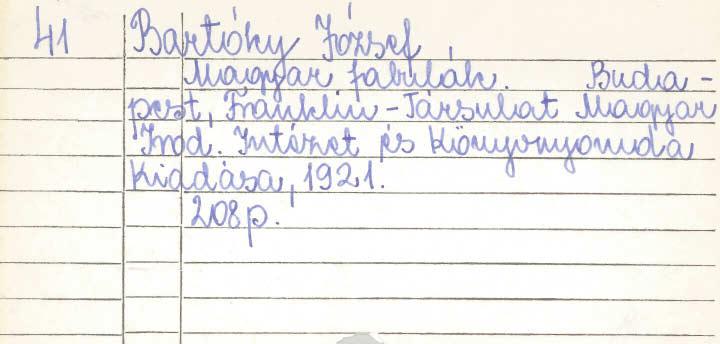 41 Bartóky József
Magyar fabulák. Buda-
pest, Franklin-Társulat Magyar
Irod. Intézet és Könyvnyomda
kiadása, 1921.
208p.